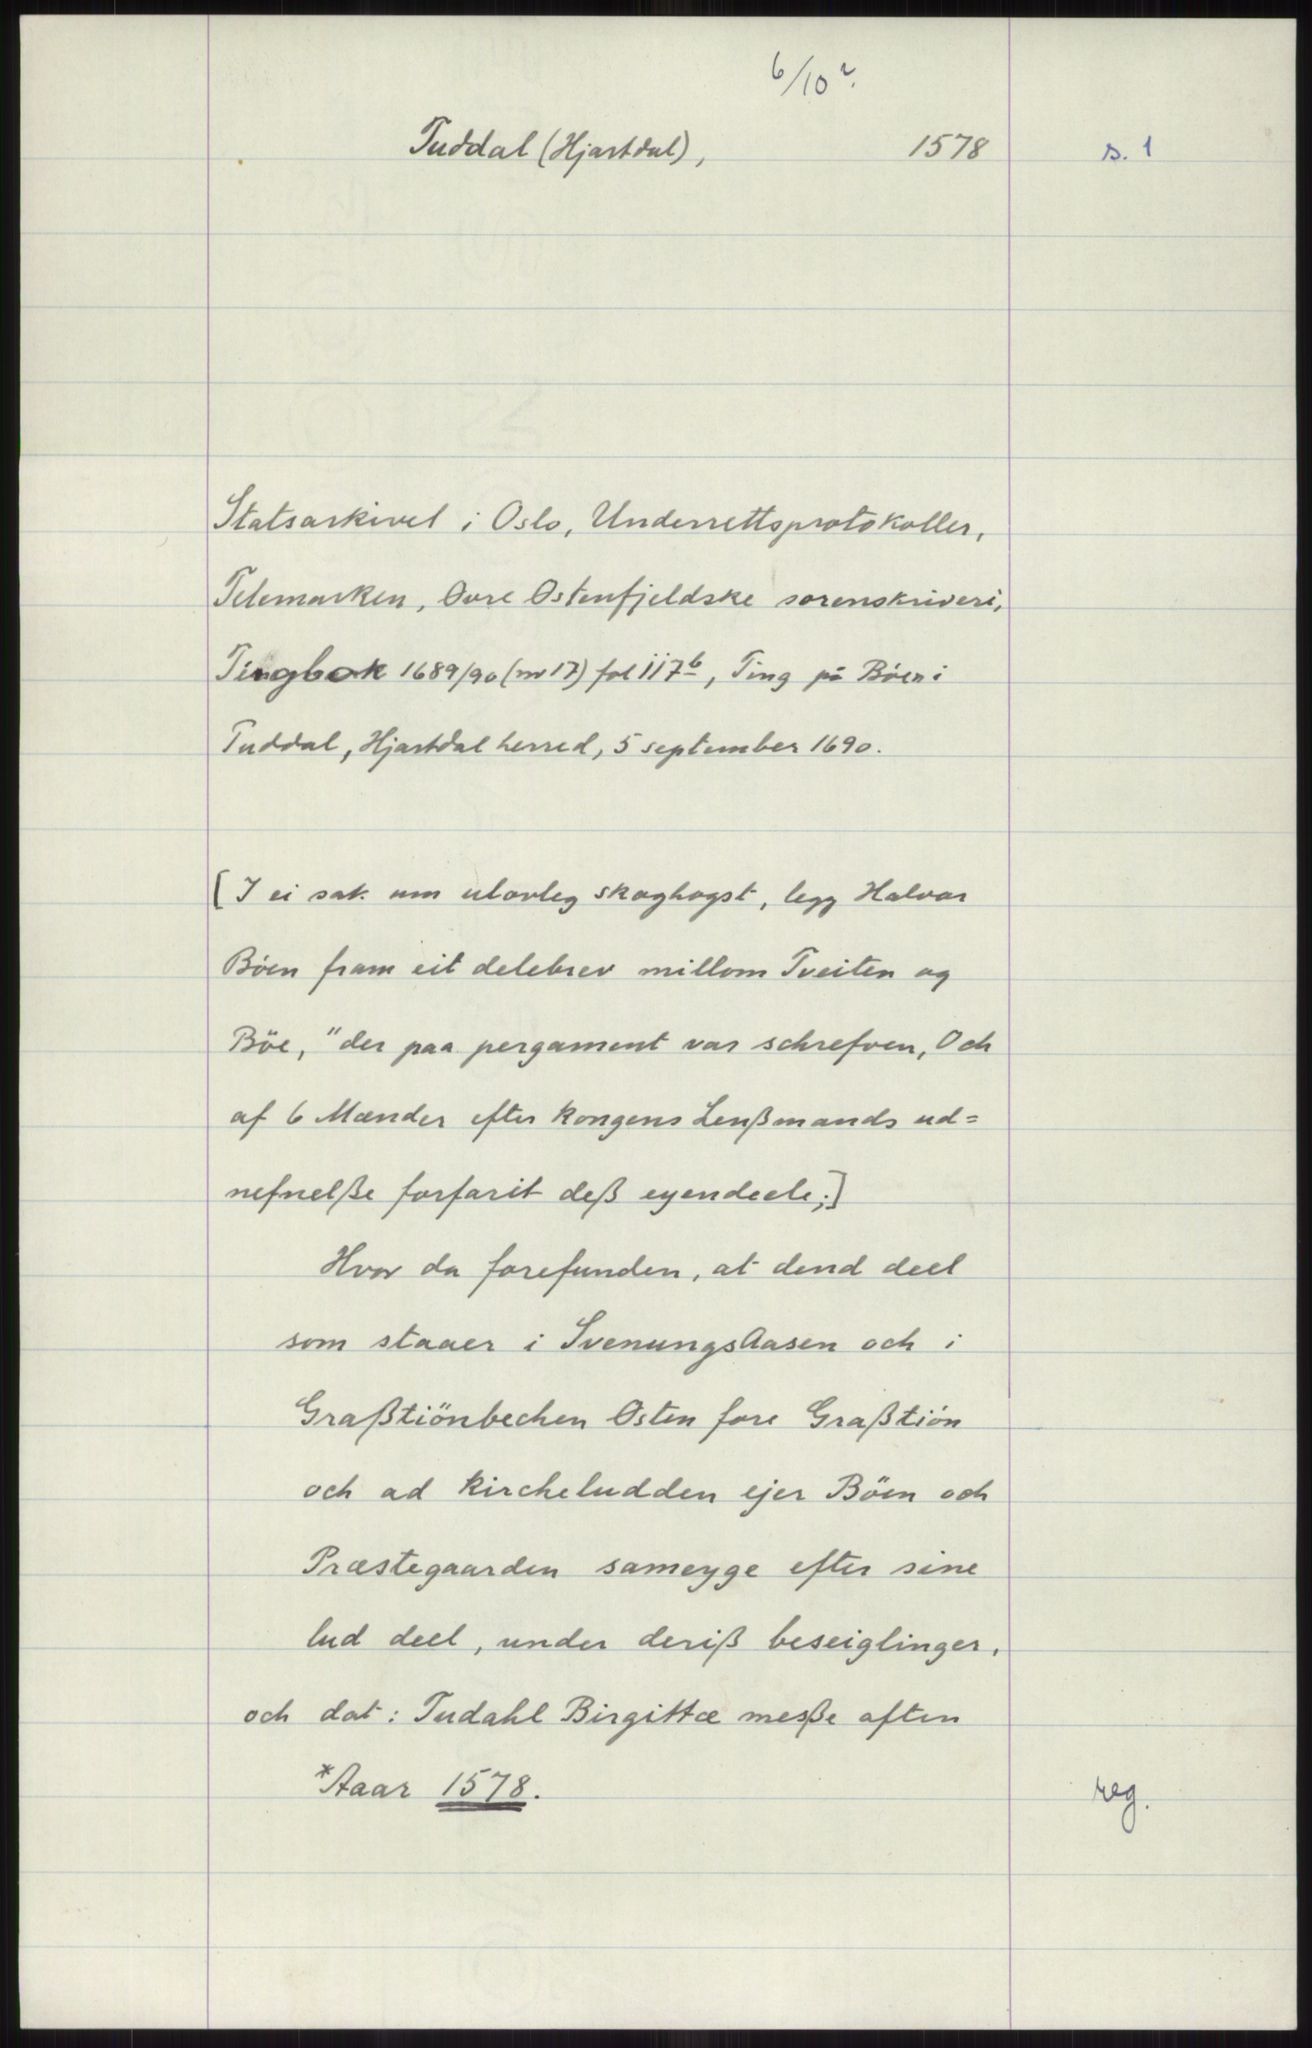 6/10 2.
Tuddal (Hjartdal), 1578 s. 1
Statsarkivet i Oslo, Underrettsprotokoller,
Telemarken, Øvre Østenfjeldske sorenskriveri,
Tingbok 1689/90 (nr 17) fol 117b, Ting på Bøen i
Tuddal, Hjartdal herred, 5 september 1690.
[I ei sak um ulovleg skoghogst, legg Halvor
Bøen fram eit delebrev millom Tveiten og
Böe, "der paa pergament var schrefven, Och
af 6 Mænder efter kongens Lenßmands ud=
nefnelße forfarit deß eyendeele;]
Hvor da forefunden, at dend deel
som staaer i SvenungsAasen och i
Graßtiönbechen Østen fore Graßtiön
och ad kircheludden ejer Böen och
Præstegaarden sameyge efter sine
lud deel, under deriß beseiglinger,
och dat: Tudahl Birgittæ meße aften
*Aaar 1578.
reg.